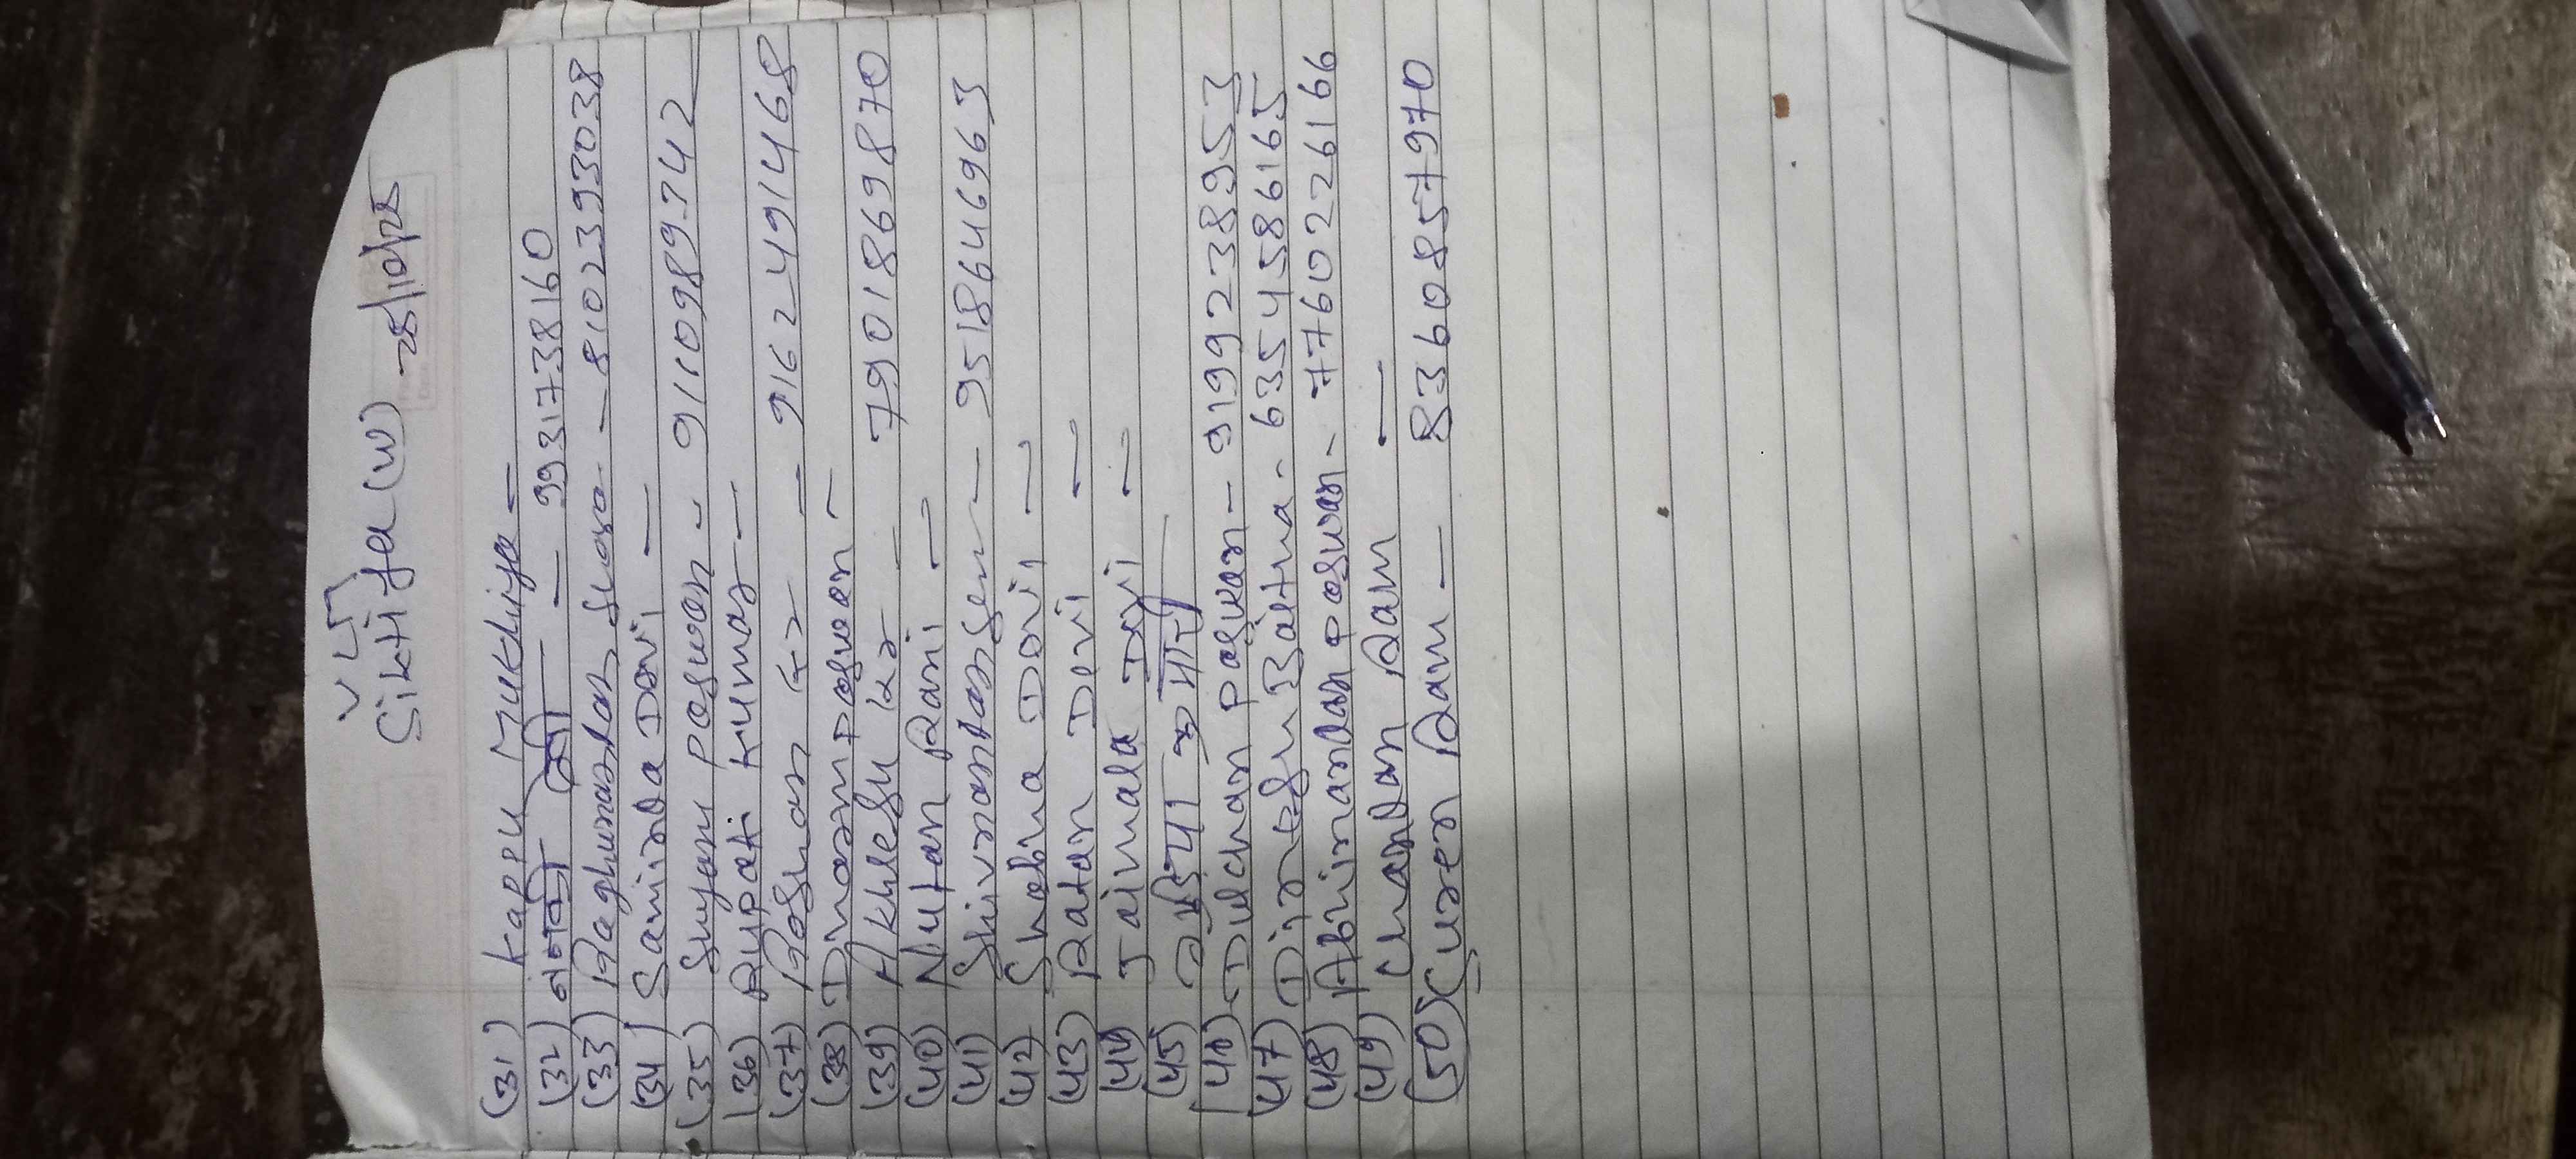 Siktiya (W) - 28/10/25
(31) Kappu Mukhiya -
(32) देवी - 9931738160
(33) Raghunandan - 8102393038
(34) Saminda Devi -
(35) Shyam Paswan - 9110989742
(36) Rupati Kumar -
(37) Roshan Kr - 9162491468
(38) Dharm Paswan -
(39) Akhlesh Kr - 7901869870
(40) Nutan Rani -
(41) Shivnandan Sen - 9518646963
(42) Shobha Devi -
(43) Ratan Devi -
(44) Jaimala Devi -
(45) कुमारी
(46) Dulchan Paswan - 9199238953
(47) Baitha - 6354586165
(48) Abhinandan Paswan - 7760226166
(49) Chandan Ram -
(50) Suren Ram - 8360857970